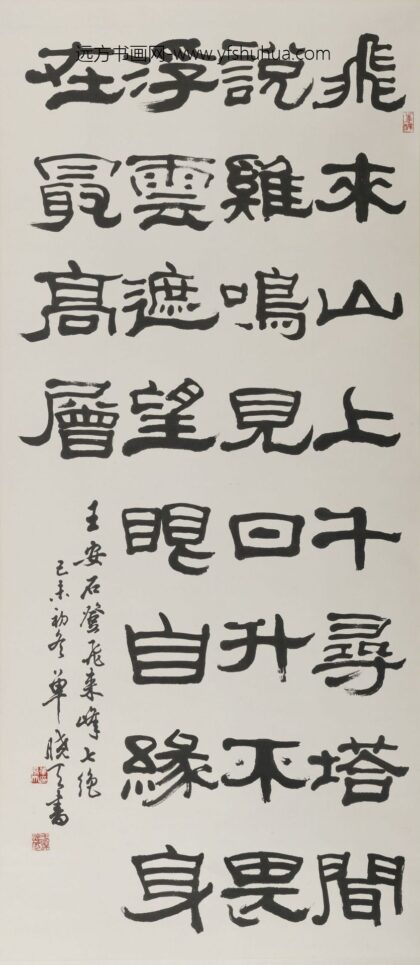 远方书画网 www.yfshuhua.com
飛來山上千尋塔聞
說雞鳴見日升不畏
浮雲遮望眼自緣身
在最高層
王安石登飛来峰七絕
己未初冬單曉天書